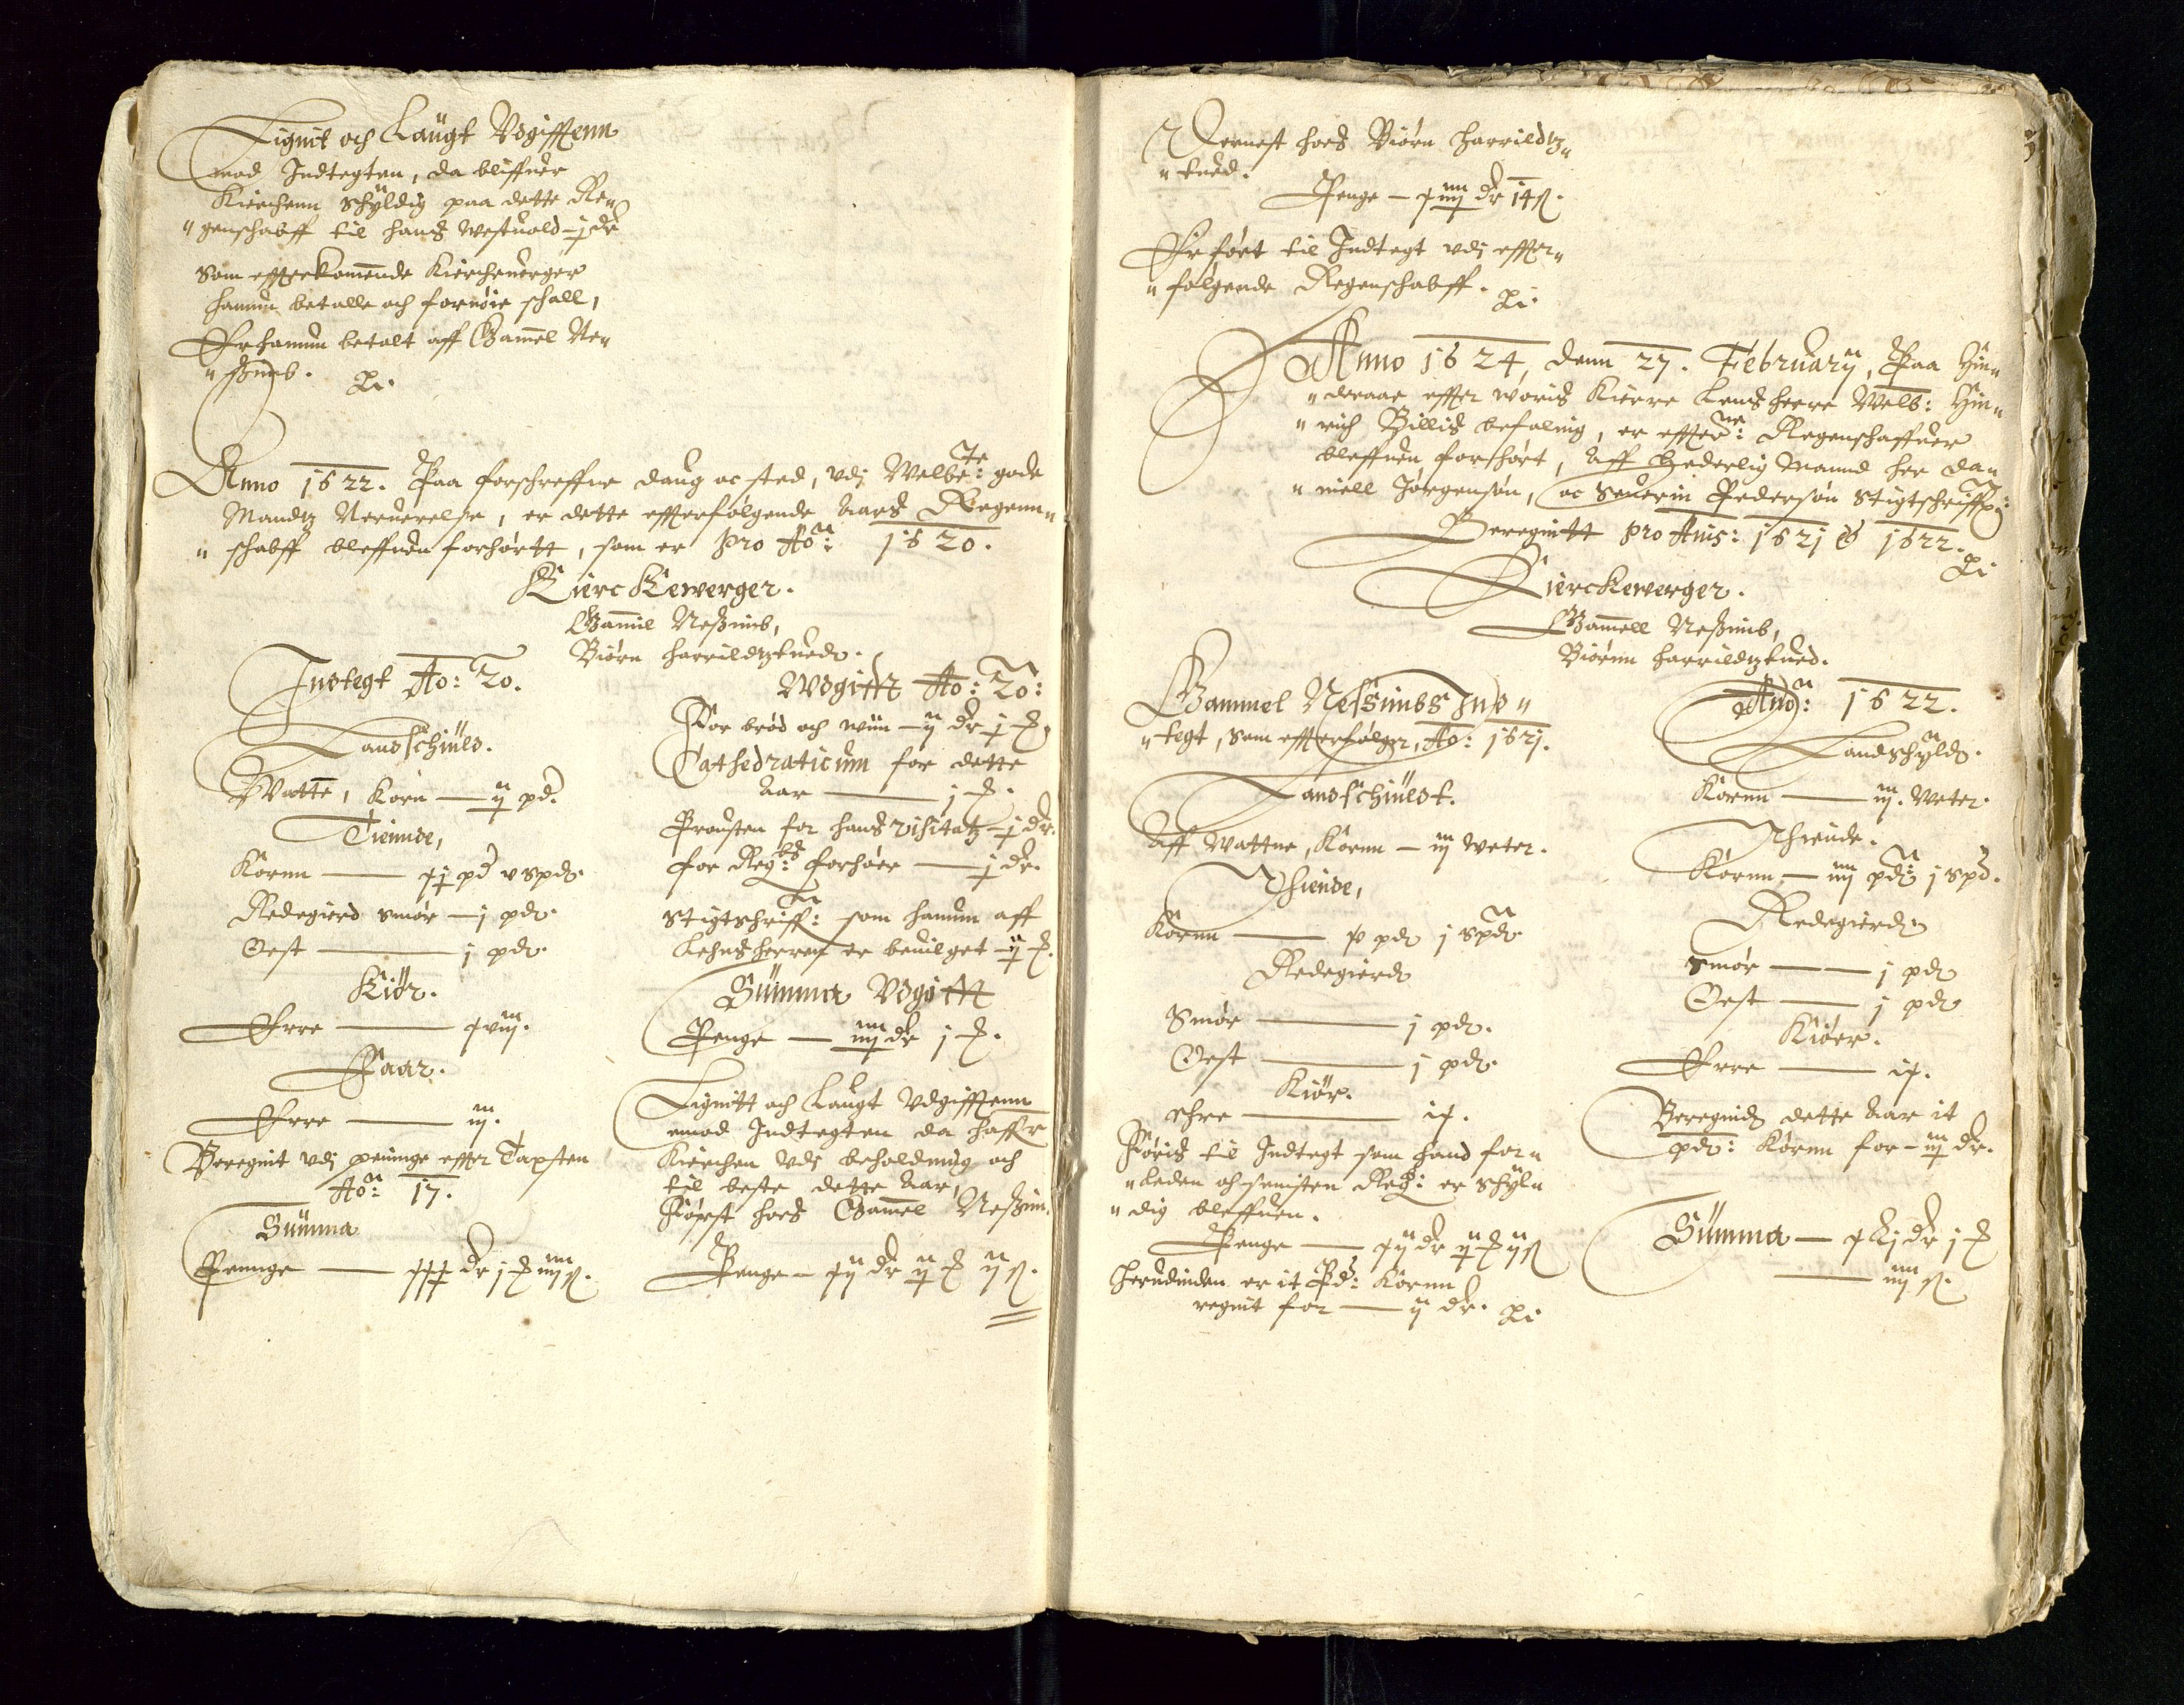 Lignit och Laugt Vdgifftenn
mod Indtegten, da bliffuer
Kirchenn Schyldig paa dette Re„
„genschabff til hans Westuold – j dr
Som effterkom̄ende Kierchewerger
hanum betalle och fornøie schall,
Er hanum betalt aff Gam̄el Ne„
„ßimb.
Anno 1622. Paa forschreffne daug oc sted, vdj Welbe: te gode
Mandtz Neruerelse, er dette effterfølgende Aars Regenn„
„schabff bleffuen forhørtt, som er pro Ao: 1620.
Kierckewerger.
Gam̄il Neßimb,
Biørn harrildtztued.
Indtegt Ao: 20.
Landschiuld.
Watte, Korn — ij pd.
Tiennde,
Kornn — xj pd v spd.
Redegierd smør — j pd.
Oest — j pd.
Kiör.
Erre — xviij.
Faar.
Erre — iij.
Beregnit vdj peninge effter Taxten
Ao: 17.
Summa
Peninge — xxx dr j ₰ iiij ß.
Vdgifft Ao: 20:
For brød och wiin – ij dr j ₰.
Cathedraticum for dette
Aar — j ₰.
Prousten for hans visitatz – j dr.
for Reg: bs forhøer — j dr.
Stigtschriff: som hanum aff
Lehnsherren er beuilget – ij ₰.
Summa Vdgifft
Penge — iiij dr j ₰.
Lignitt och Laugt Vdgifftenn
emod Indtegten da haffr
Kierchen vdj beholdning och
til beste dette Aar,
Førest hoes Gam̄el Neßim.
Penge – xij dr ij ₰ ij ß.
Dernest hoes Biørn harrildtz„
„tued.
Penge – xiiij dr 14 ß.
Er ført til Indtegt vdj effter„
„følgende Regenschabff.
Anno 1624, denn 27. Februarij, Paa Hin„
„deraae effter woris Kierre Lensherre Welb: Hin„
„rich Billis befaling, er effter: ne Regenschaffuer
bleffuen forhørt, Aff Hederlig Mannd her Da„
„niell Jørgensøn, oc Seuerin Pedersøn Stigtschriff:
Beregnitt pro Anis: 1621 & 1622.
Kierckewerger.
Gam̄ell Neßimb,
Biørnn harrildtztued.
Gammel Neßimbs Ind„
„tegt, som effterfølger, Ao: 1621.
Landschiuldt.
Aff Wattne, Kornn – iij Weter.
Thiende,
Kornn — x pd j spd.
Redegierd
Smør — j pd.
Oest — j pd.
Kiör.
ehre — ix.
Føris til Indtegt som hand for„
„leden och seniste Reg: er Schyl„
„dig bleffuen.
Penge — xij dr ij ₰ ij ß
Herudinden er it Pd: Kornn
regnit for — ij dr.
Ano: 1622.
Landschyld.
Kornn — iij. Weter.
Thiende.
Kornn – iiij pd: j spd.
Redegierd
Smør — j pd
Oest — j pd
Kiöer.
Erre — ix.
Beregnid dette Aar it
pd: Kornn for – iij dr.
Summa — xLj dr j ₰
— iiij ß.